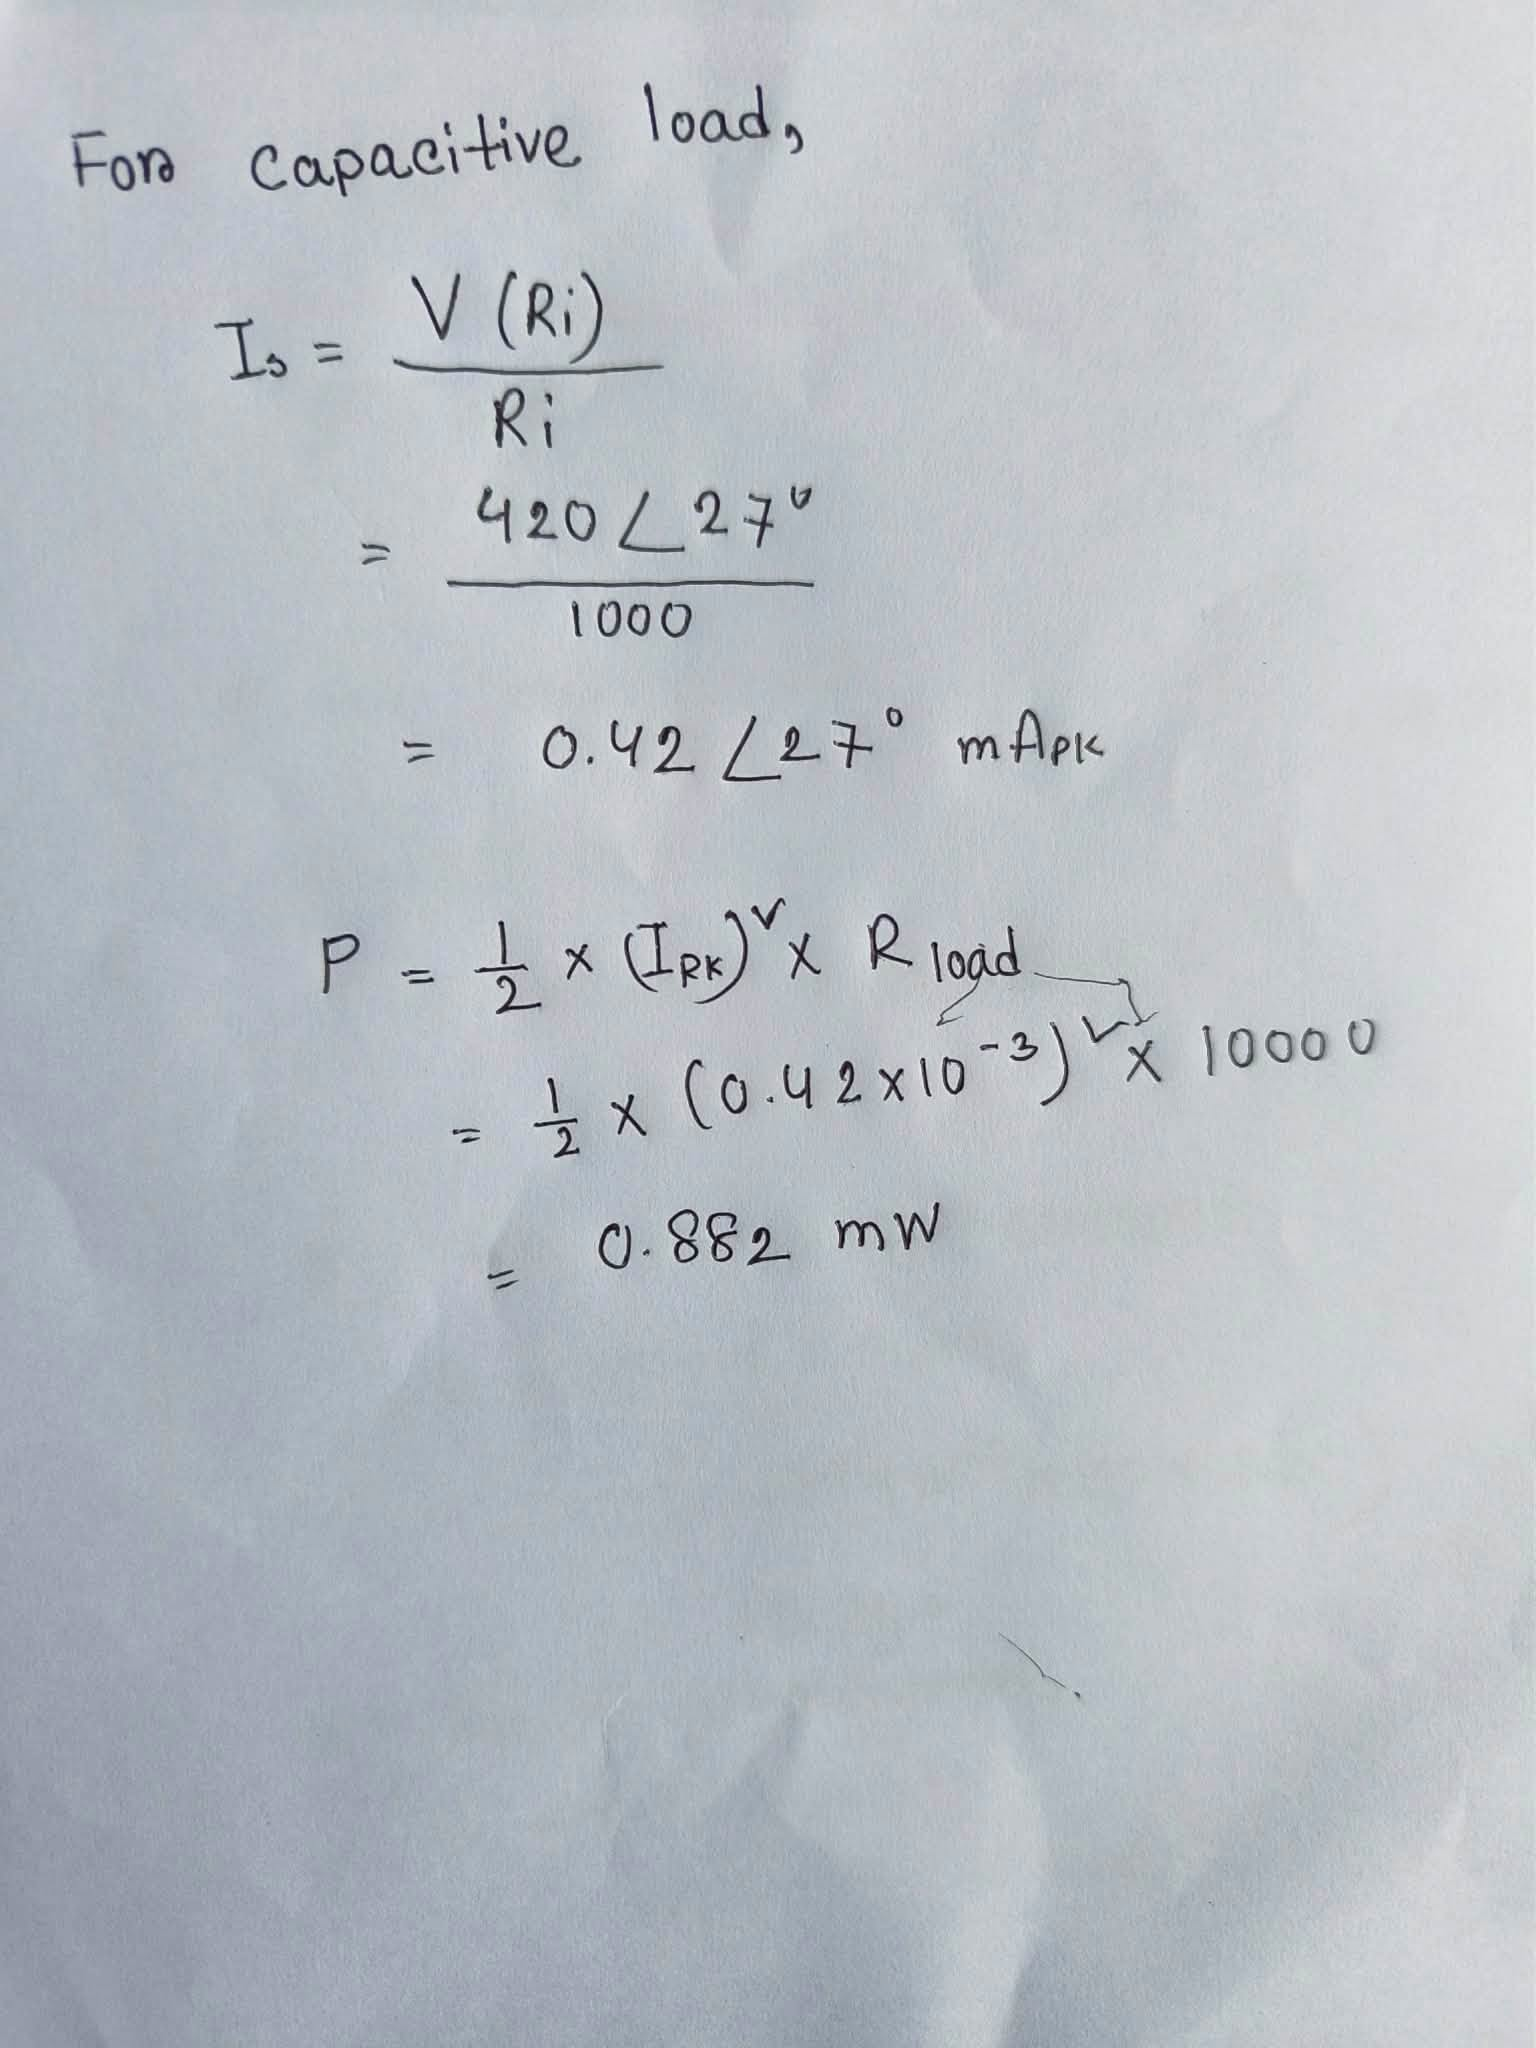 For capacitive load,
Is = V (Ri) / Ri
= 420 ∠27° / 1000
= 0.42 ∠27° mApk
P = 1/2 × (IPK)² × R load
= 1/2 × (0.42×10⁻³)² × 10000
= 0.882 mW